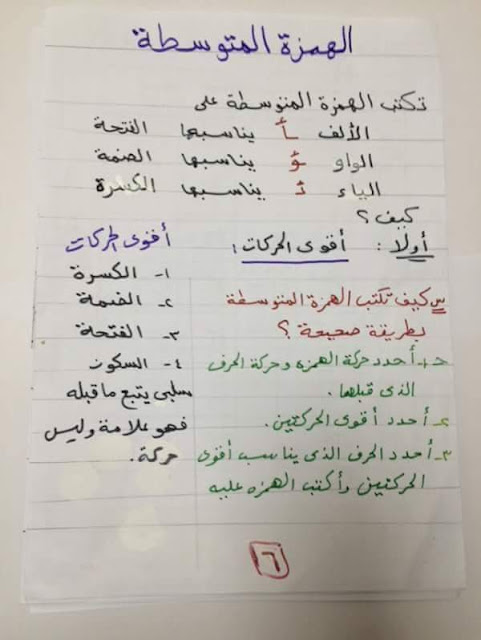 الهمزة المتوسطة
تكتب الهمزة المتوسطة على
الألف أ يناسبها الفتحة
الواو ؤ يناسبها الضمة
الياء ئ يناسبها الكسرة
كيف ؟
أولا : أقوى الحركات :
س كيف تكتب الهمزة المتوسطة
بطريقة صحيحة ؟
حـ ١ أحدد حركة الهمزه وحركة الحرف
الذى قبلها .
٢- أحدد أقوى الحركتين .
٣- أحدد الحرف الذى يناسب أقوى
الحركتين وأكتب الهمزه عليه
أقوى الحركات
١- الكسرة
٢- الضمة
٣- الفتحة
٤- السكون
سلبى يتبع ما قبله
فهو علامة وليس
حركة .
٦